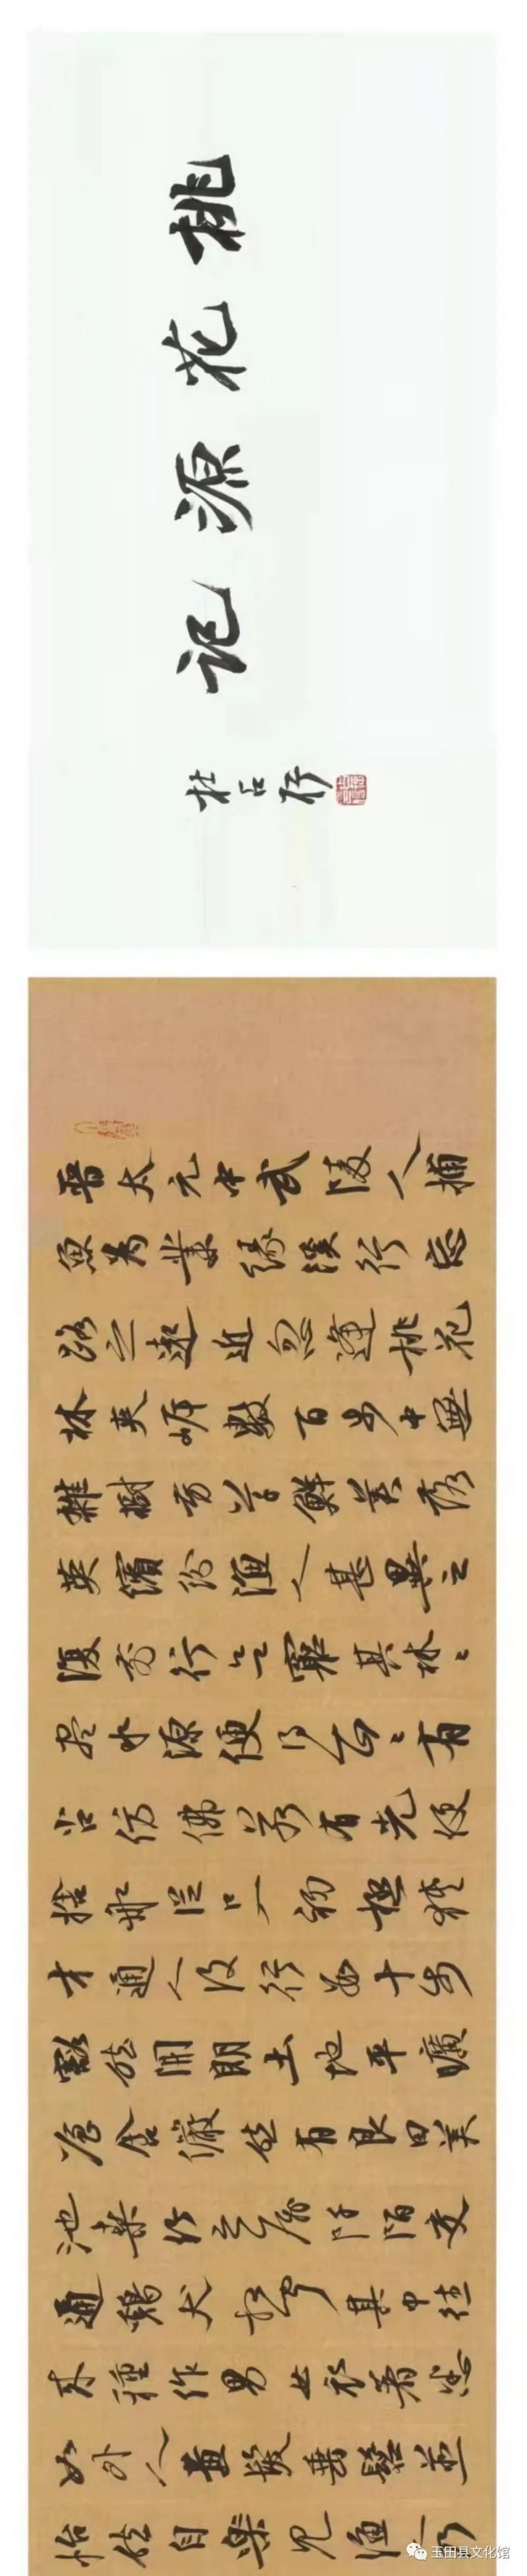 桃花源记
杜占行
晋太元中武陵人捕
魚为業缘溪行忘
路之遠近忽逢桃花
林夹岸數百步中無
雜樹芳草鮮美落
英缤纷渔人甚異之
復前行欲窮其林々
尽水源便得一山々有
小口仿佛若有光便
捨船從口入初極狭
才通人復行數十步
豁然開朗土地平曠
屋舍儼然有良田美
池桑竹之属阡陌交
通鷄犬相聞其中往
来種作男女衣着悉
如外人黄髮垂髫並
怡然自樂見渔人乃
玉田县文化馆